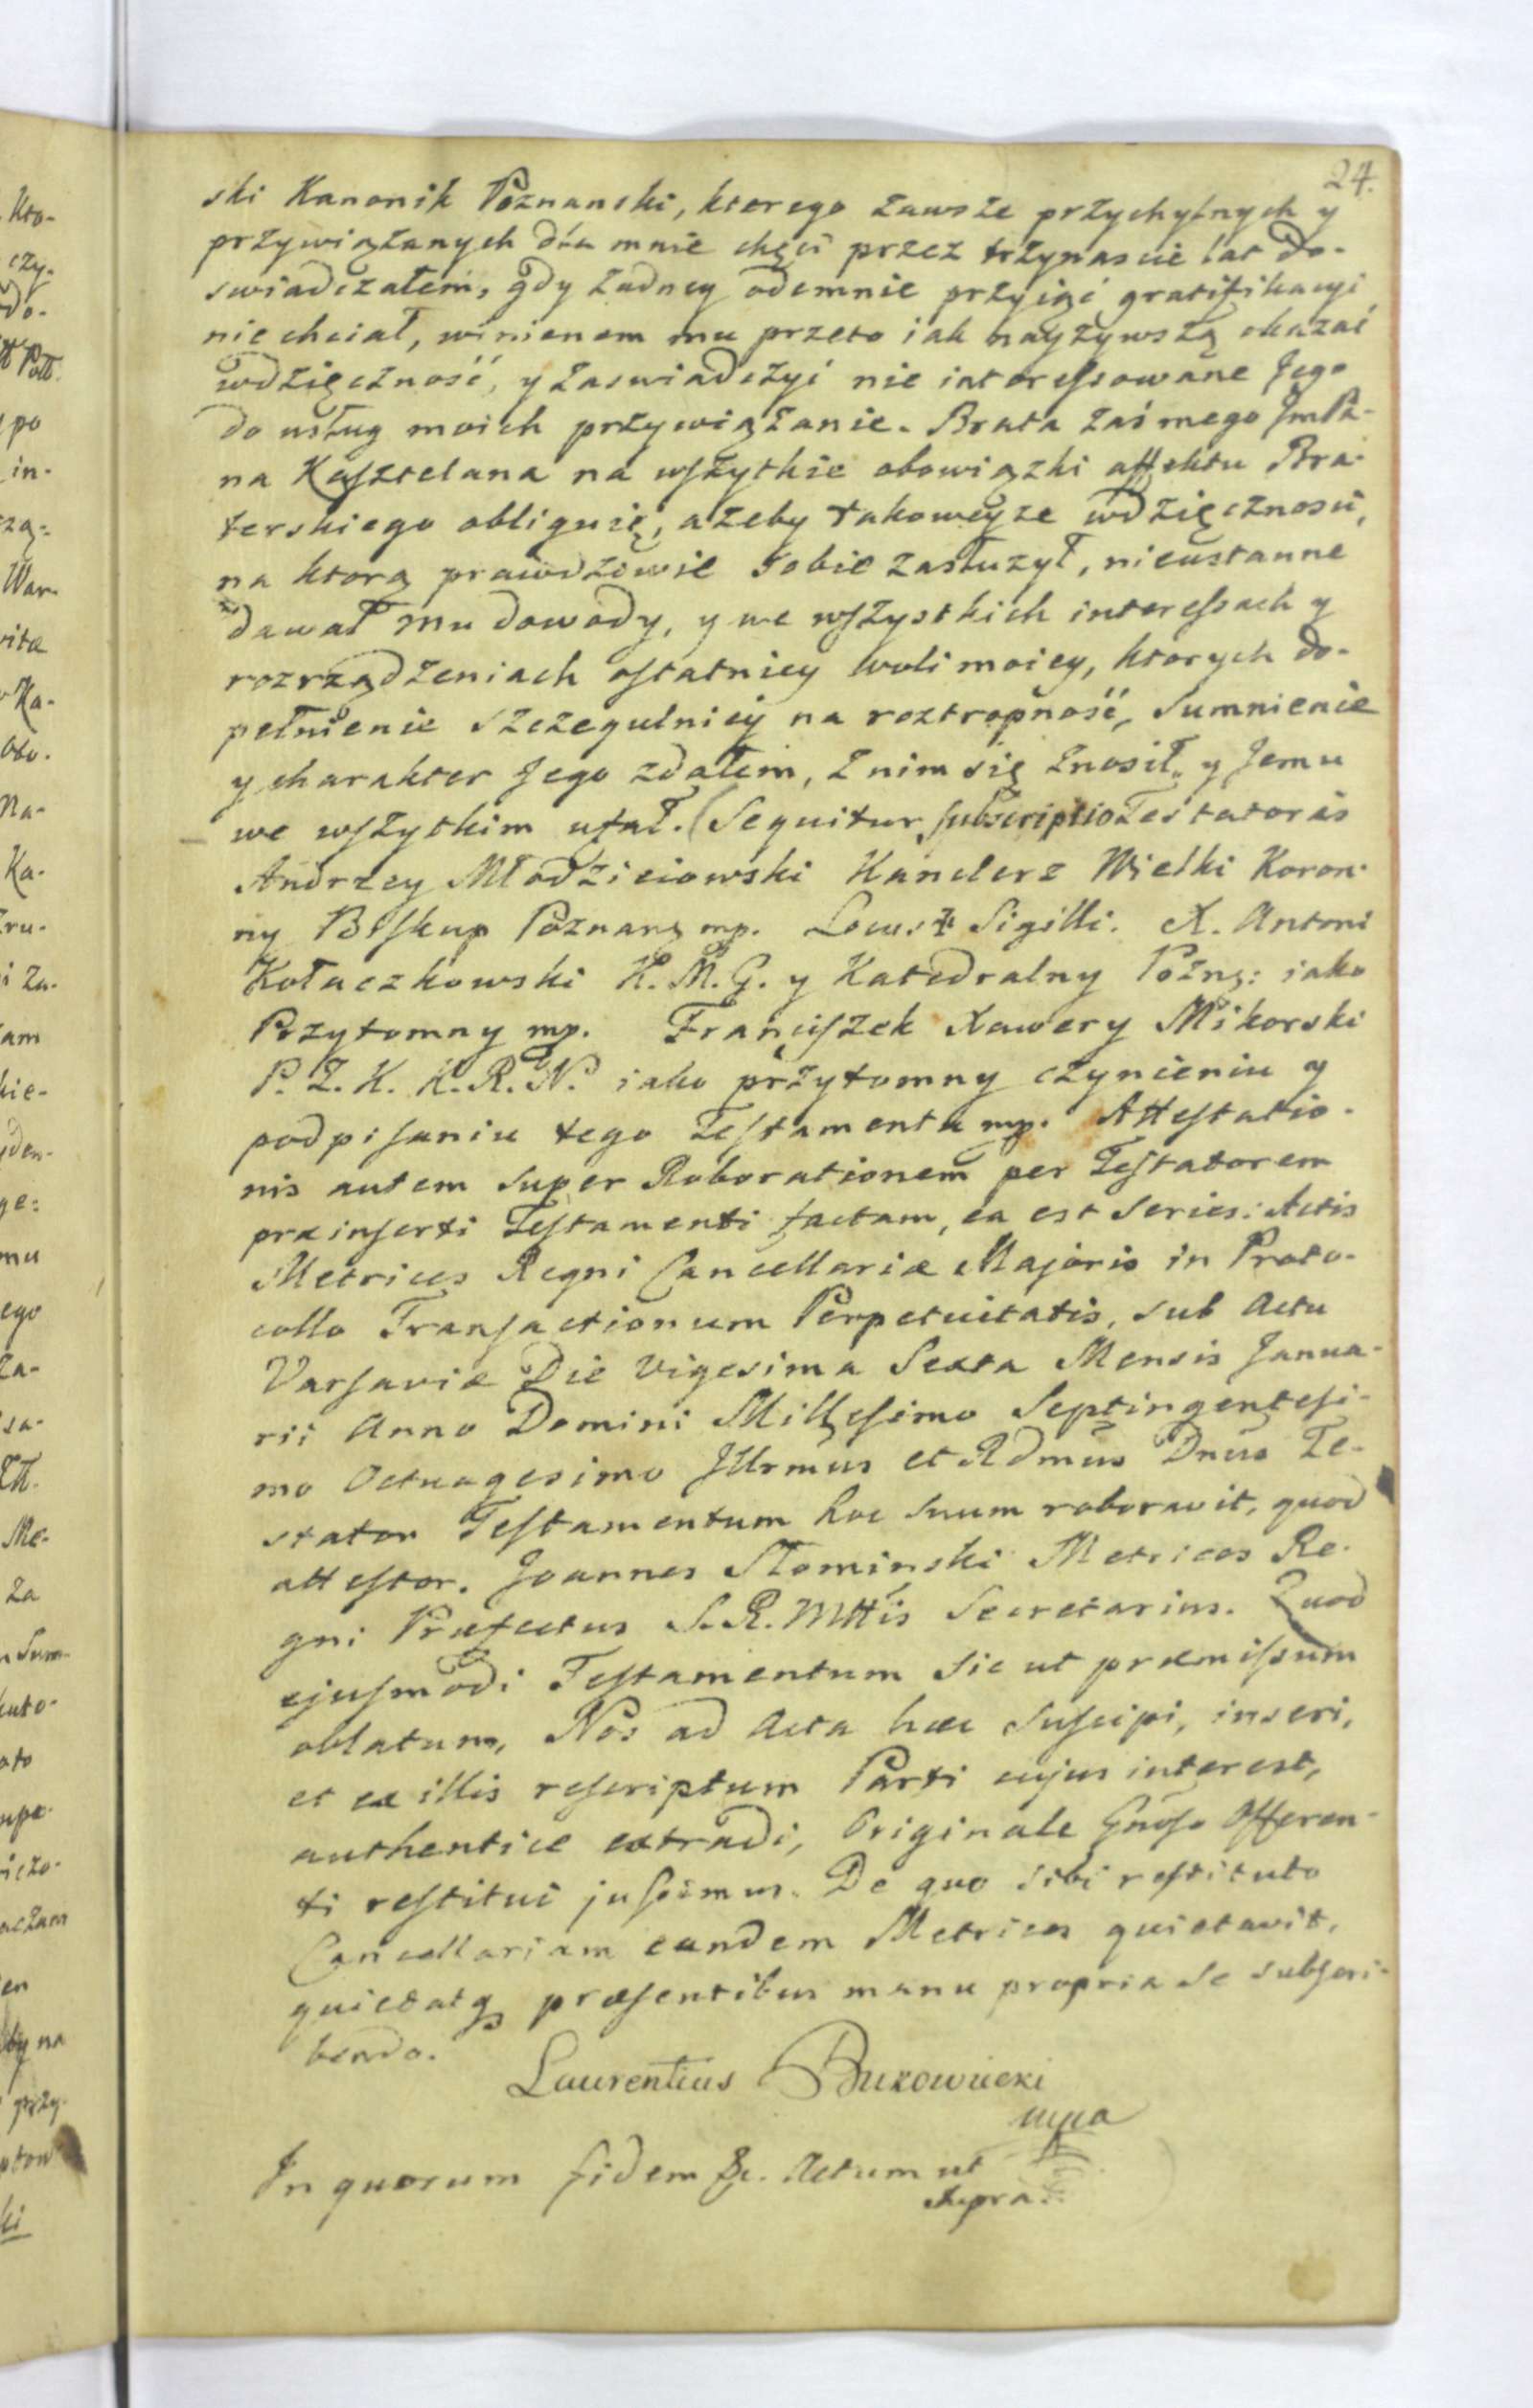 24.
ski Kanonik Poznanski, ktorego zawsze przychylnych y
przywiązanych dla mnie chęci przez trzynascie lat do-
swiadczałem, gdy żadney odemnie przyiąć gratifikacyi
nie chciał, winienem mu przeto iak nayżywszą okazać
wdzięczność, y zaswiadczyć nie interessowane Jego
do usług moich przywiązanie. Brata zaś mego JmPa-
na Kasztelana na wszytkie obowiązki affektu Bra-
terskiego obliguię, ażeby takoweyże wdzięcznosci,
na ktorą prawdziwie sobie zasłużył, nieustanne
dawał mu dowody, y we wszystkich interessach y
rozrządzeniach ostatniey woli moiey, ktorych do-
pełnienie szczegulniey na roztropność, sumnienie
y charakter Jego zdałem, z nim się znosił, y Jemu
we wszytkim ufał. (Sequitur subscriptio Testatoris
Andrzey Młodzieiowski Kanclerz Wielki Koron-
ny Biskup Poznanȝ mp. Locus ✝ Sigilli. X. Antoni
Kołaczkowski K. M. G. y Katedralny Poznȝ: iako
Przytomny mp. Franciszek Xawery Mikorski
P. Z. K. K. R. N. iako przytomny czynieniu y
podpisaniu tego Testamentu mp. Attestatio-
nis autem super Roborationem per Testatorem
præinserti Testamenti factam, ea est series: Actis
Metrices Regni Cancellariæ Majoris in Proto-
collo Transactionum Perpetuitatis, sub Actu
Varsaviæ Die Vigesima Sexta Mensis Janua-
rii Anno Domini Millesimo Septingentesi-
mo Octuagesimo Jllrmus et Rdmus Dnus Te-
stator Testamentum hoc suum roboravit, quod
attestor. Joannes Słominski Metrices Re-
gni Præfectus S. R. Mttis Secretarius. Quod
ejusmodi Testamentum sic ut præmissum
oblatum, Nos ad Acta hæc suscipi, inseri,
et ex illis rescriptum Parti cujus interest,
authentice extradi, Originale Gnoso Offeren-
ti restitui jussimus. De quo sibi restituto
Cancellariam eandem Metrices quietavit,
quietatqȝ præsentibus manu propria se subscri-
bendo.
Laurentius Bukowiecki
mpa
In quorum fidem &c. Actum ut
supra.